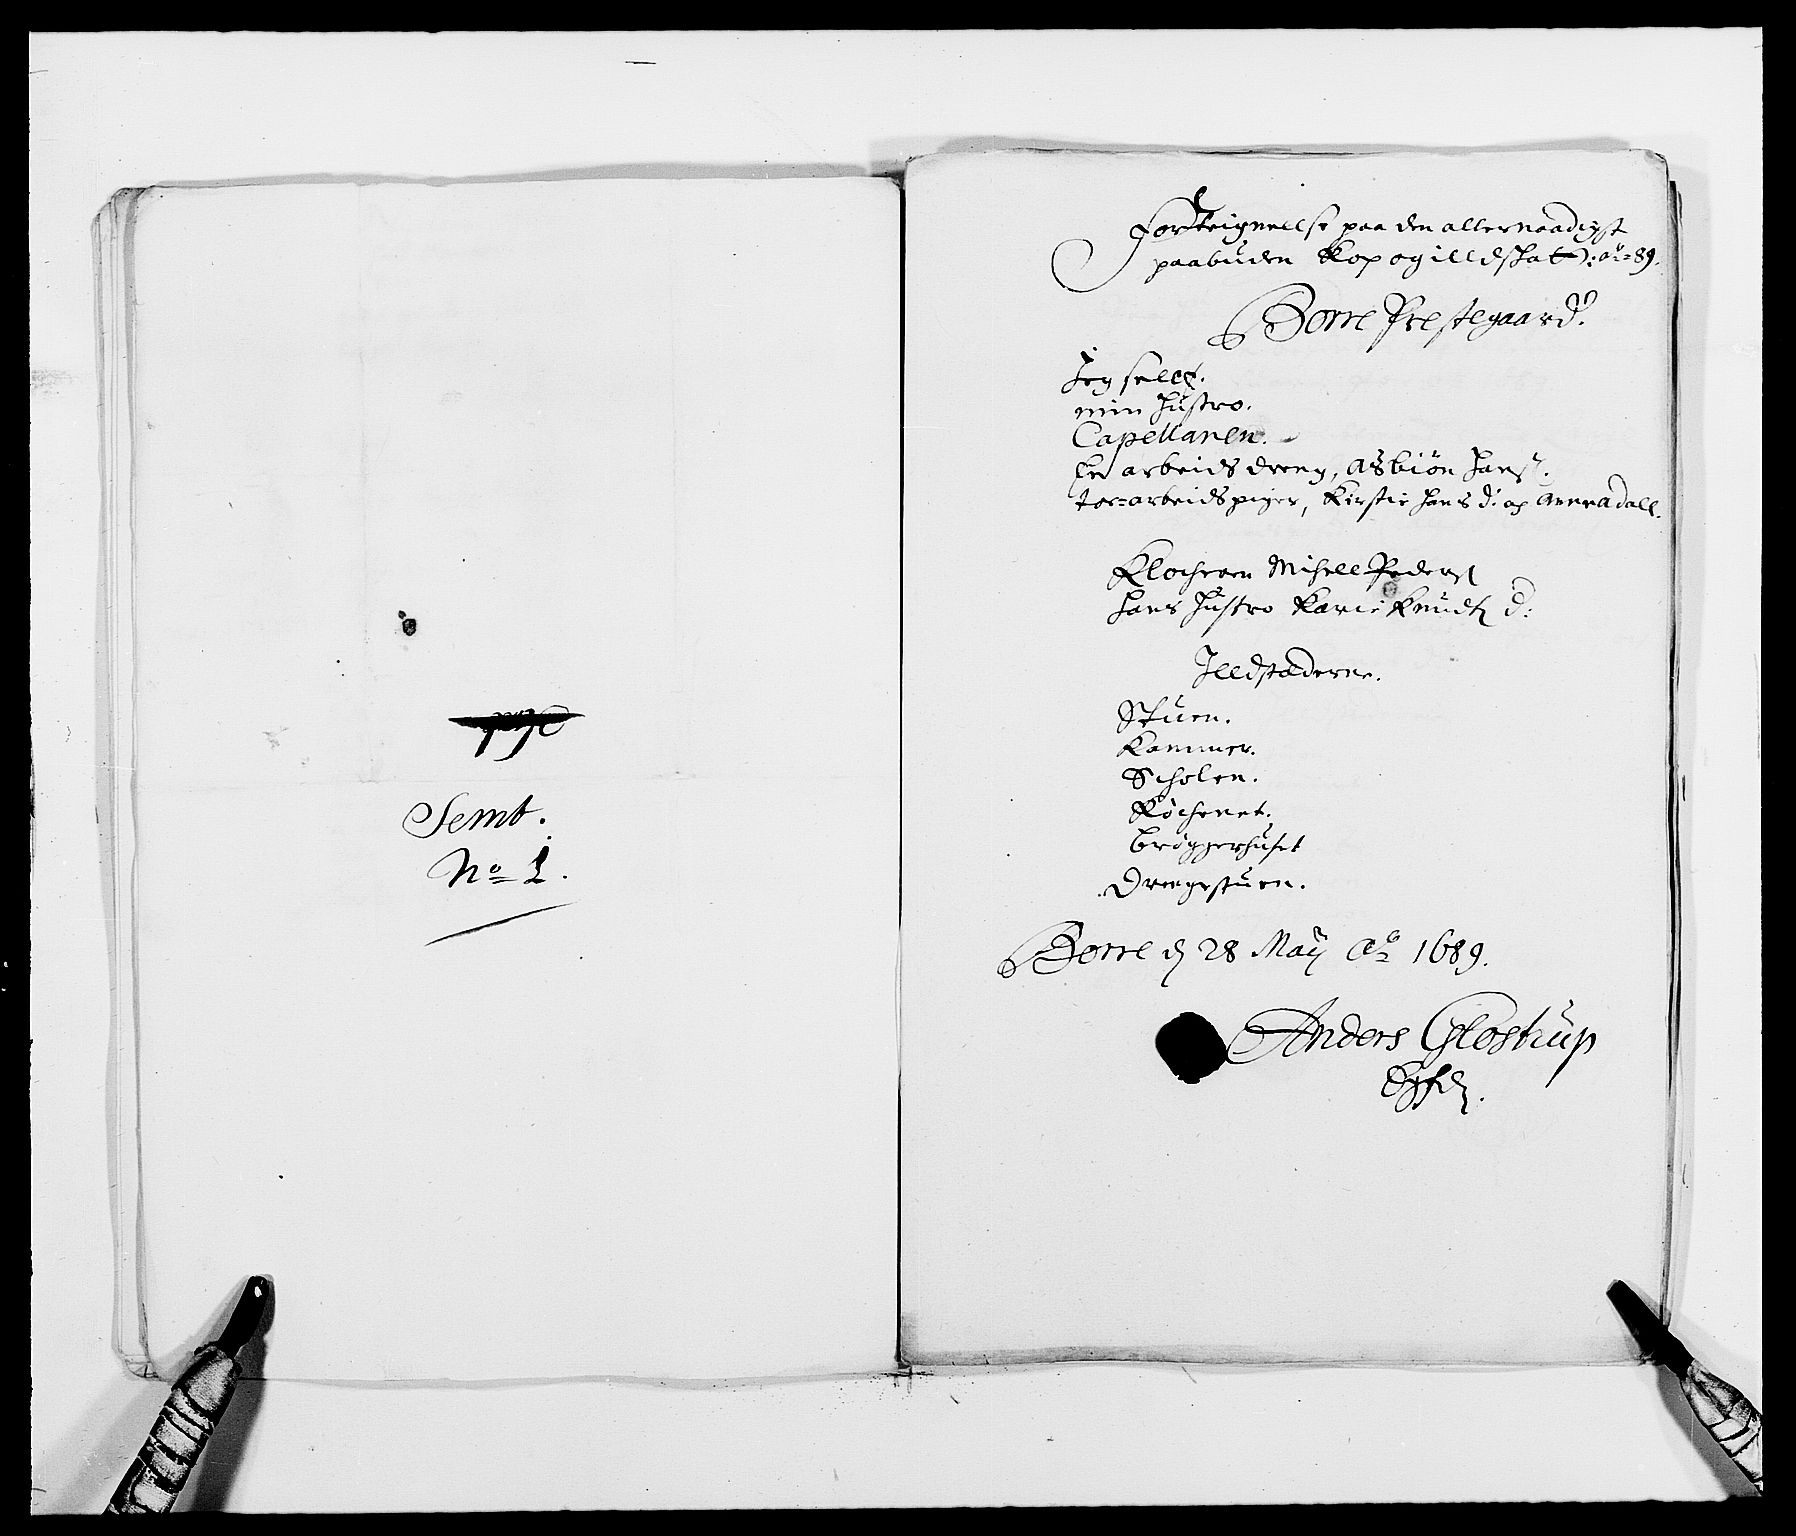 Semb.
No 1.
Forteignellse paa den allernaadigst
paabuden Kop og illdskat: ao 89.
Borre Prestegaard.
Jeg sellf.
min Hustro.
Capellanen.
En arbeids dreng, Asbiøn Hans:
toe arbeidspiger, Kirstie Hans d: og Anna dall.
Klocheren Mihell Peders
hans Hustro Karie Knuds d:
Illdstæderne.
Stuen.
Kammer.
Scholen.
Køchenet.
brøggerhuset
Drengestuen.
Borre d 28 Maij Ao 1689.
Anders Glostrup